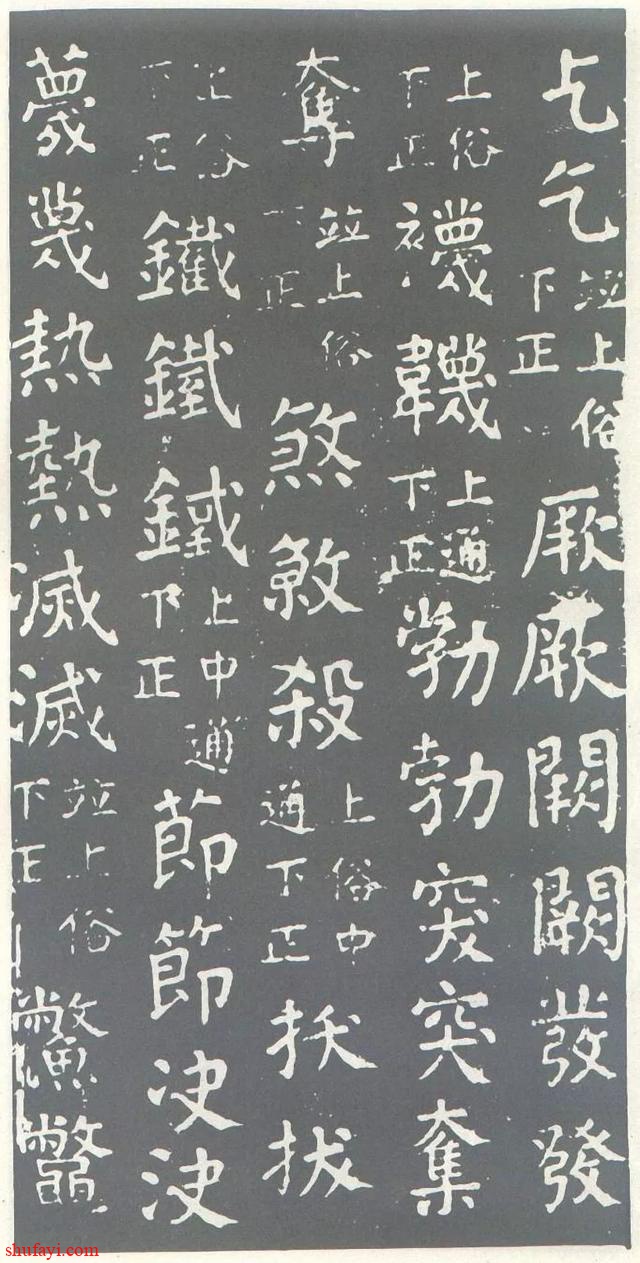 乞乞並上俗下正厥厥闕闕發發
上俗下正襪韤上通下正勃勃突突奪
奪並上俗下正煞煞殺上俗中通下正拔拔
上俗下正鐵鐵鐵上中通下正節節决決
蔑蔑熱熱滅滅並上俗下正鱉鼈
shufayi.com